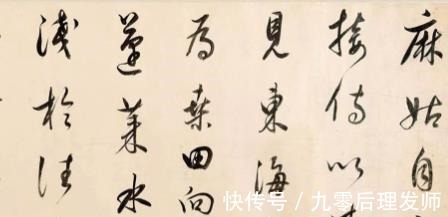 麻姑自
接侍以
見東海
為桑田向
蓬萊水
淺於往
快传号 / 九零后理发师